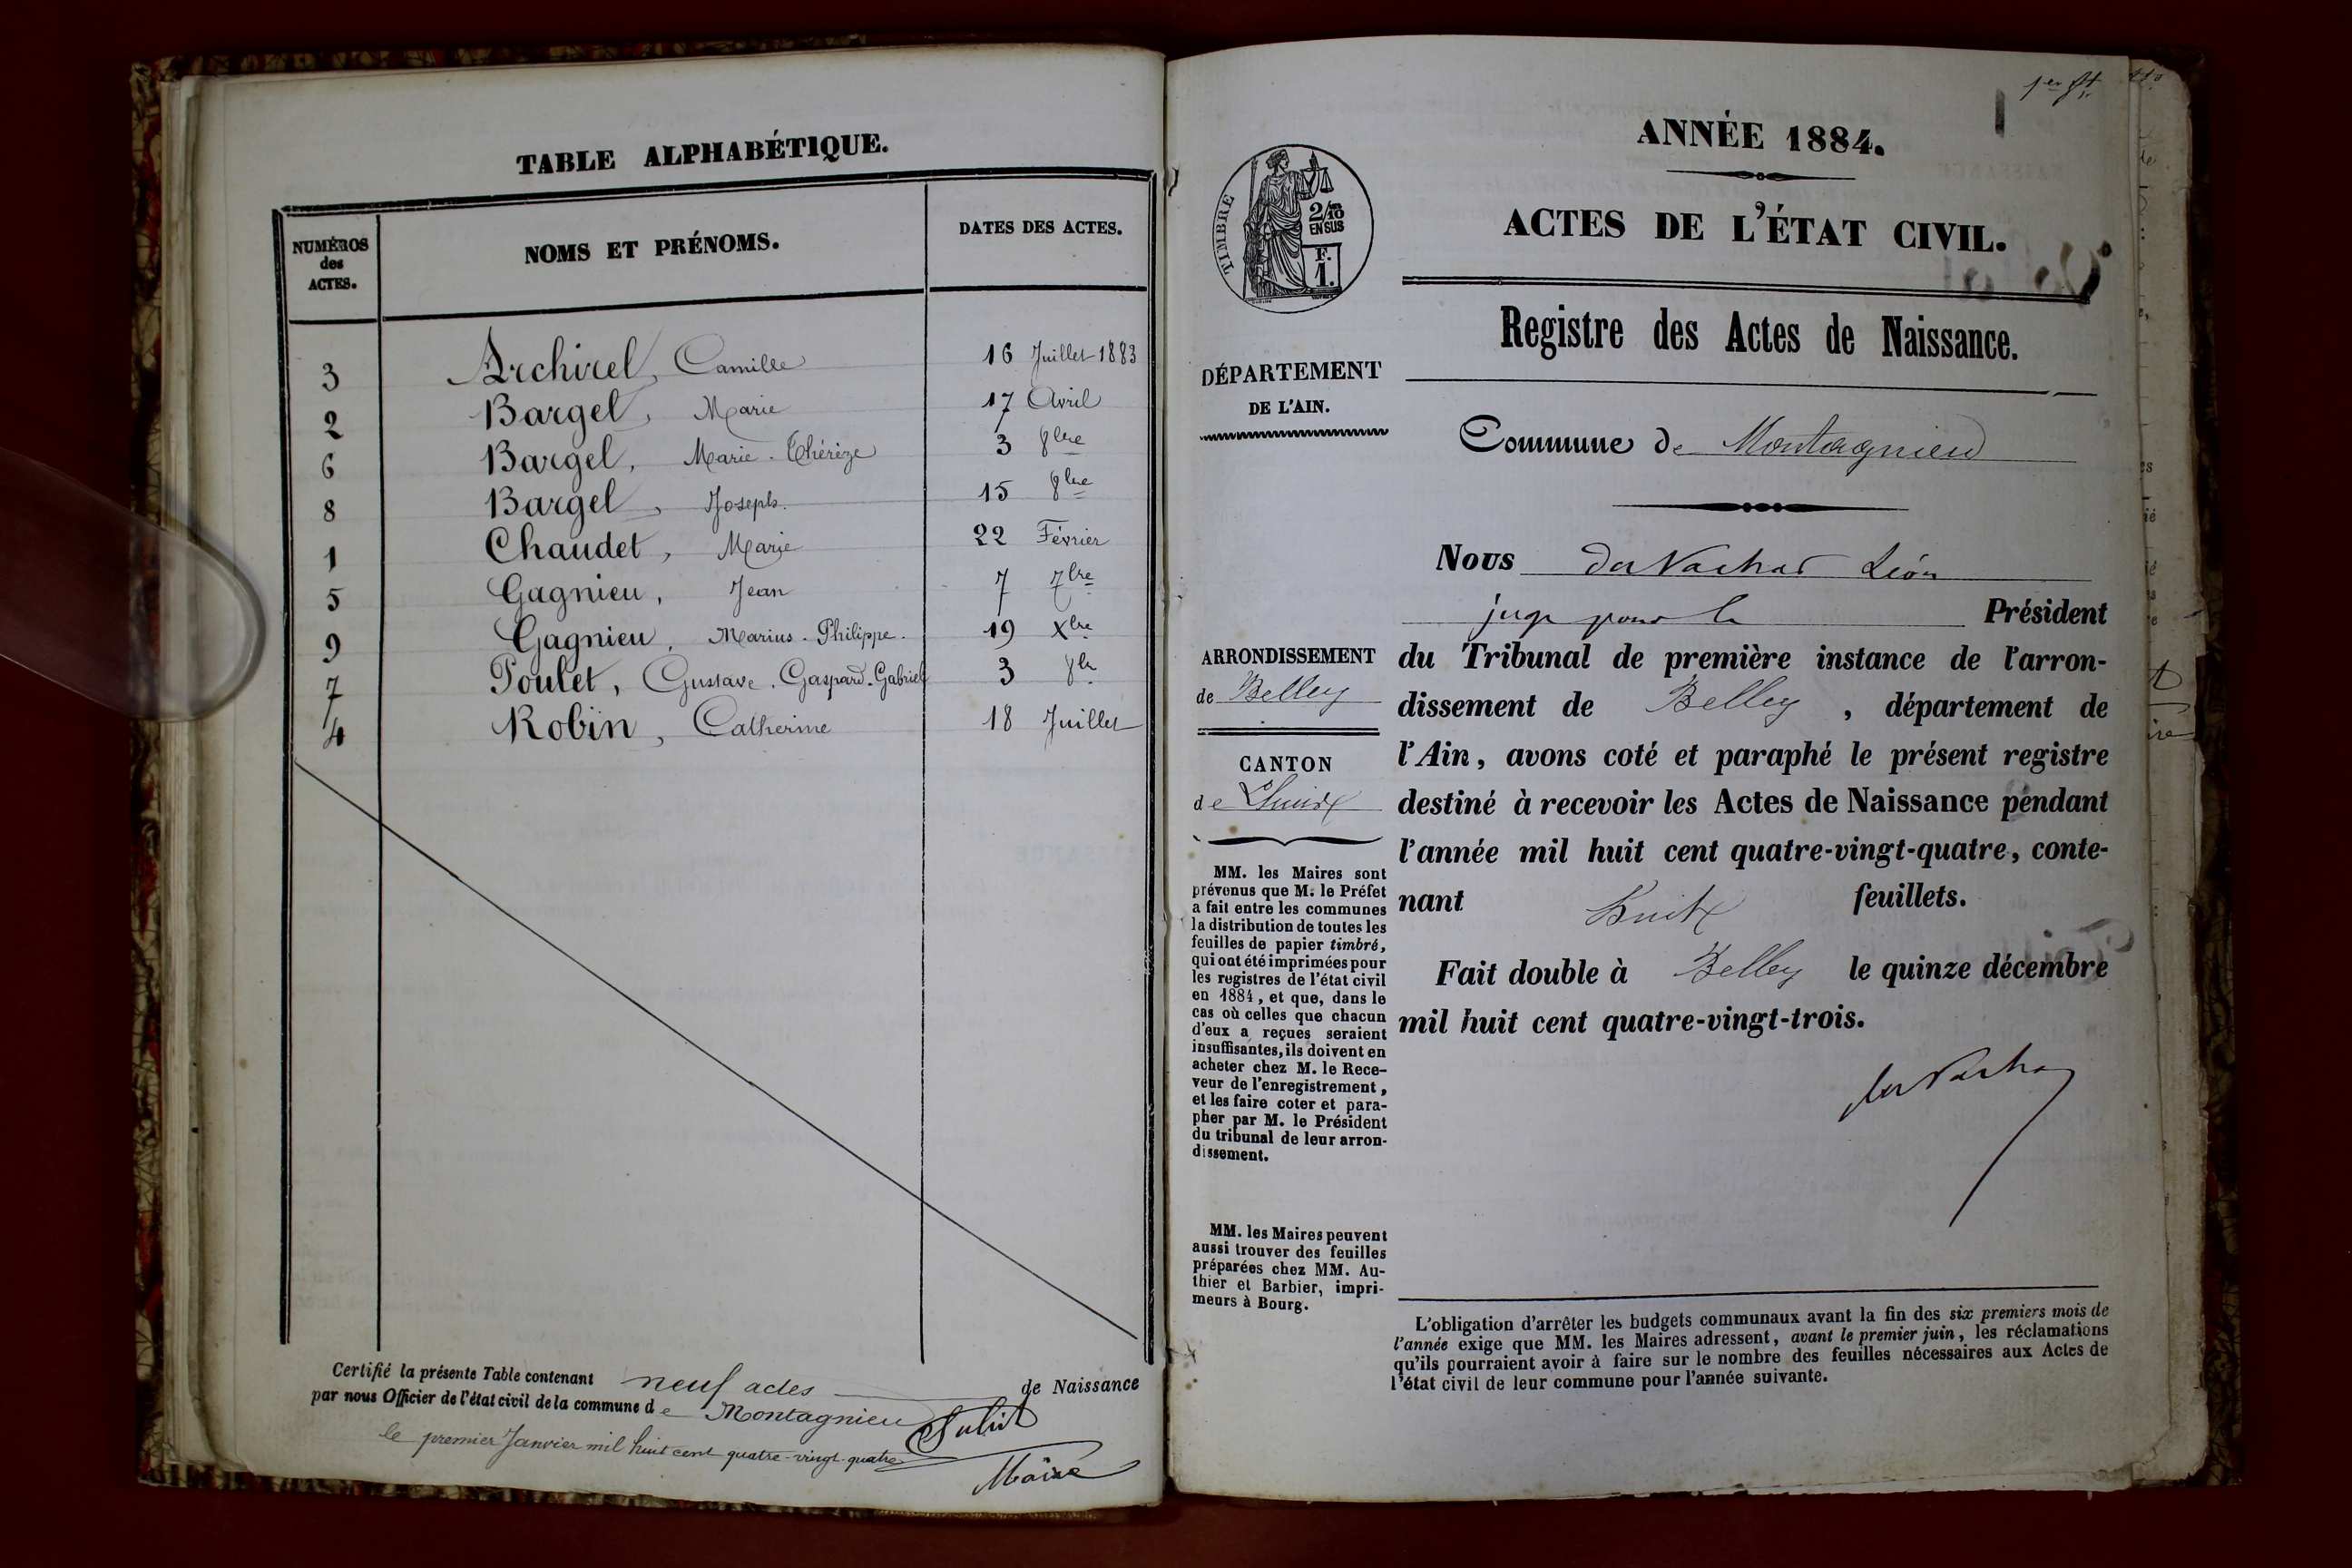 TABLE ALPHABÉTIQUE.
NUMÉROS des ACTES. NOMS ET PRÉNOMS. DATES DES ACTES.
3 Archirel, Camille 16 Juillet 1883
2 Bargel, Marie 17 Avril
6 Bargel, Marie-Thérèze 3 8bre
8 Bargel, Joseph. 15 8bre
1 Chaudet, Marie 22 Février
5 Gagnieu, Jean 7 7bre
9 Gagnieu, Marius-Philippe. 19 Xbre
7 Poulet, Gustave. Gaspard-Gabriel 3 8bre
4 Robin, Catherine 18 Juillet
Certifié la présente Table contenant neuf actes de Naissance
par nous Officier de l'état civil de la commune de Montagnieu
le premier Janvier mil huit cent quatre-vingt-quatre
Maire
1er ft
ANNÉE 1884.
ACTES DE L'ÉTAT CIVIL.
TIMBRE
2/10
EN SUS
F.
1.
Registre des Actes de Naissance.
DÉPARTEMENT
DE L'AIN.
Commune de Montagnieu
Nous Léon
juge pour le Président
du Tribunal de première instance de l'arron-
dissement de Belley, département de
l'Ain, avons coté et paraphé le présent registre
destiné à recevoir les Actes de Naissance pendant
l'année mil huit cent quatre-vingt-quatre, conte-
nant huit feuillets.
Fait double à Belley le quinze décembre
mil huit cent quatre-vingt-trois.
ARRONDISSEMENT
de Belley
CANTON
de Lhuis
MM. les Maires sont
prévenus que M. le Préfet
a fait entre les communes
la distribution de toutes les
feuilles de papier timbré,
qui ont été imprimées pour
les registres de l'état civil
en 1884, et que, dans le
cas où celles que chacun
d'eux a reçues seraient
insuffisantes, ils doivent en
acheter chez M. le Rece-
veur de l'enregistrement,
et les faire coter et para-
pher par M. le Président
du tribunal de leur arron-
dissement.
MM. les Maires peuvent
aussi trouver des feuilles
préparées chez MM. Au-
thier et Barbier, impri-
meurs à Bourg.
L'obligation d'arrêter les budgets communaux avant la fin des six premiers mois de
l'année exige que MM. les Maires adressent, avant le premier juin, les réclamations
qu'ils pourraient avoir à faire sur le nombre des feuilles nécessaires aux Actes de
l'état civil de leur commune pour l'année suivante.